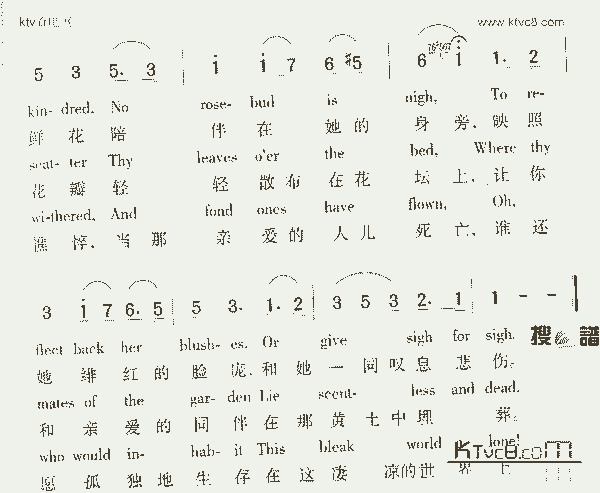 www.ktvc8.com
5 3 5. 3 | i i 7 6 #5 | 6 i 1. 2 |
kin- dred, No rose- bud is nigh, To re-
鲜 花 陪 伴 在 她 的 身 旁、映 照
scat- ter Thy leaves o'er the bed, Where thy
花 瓣 轻 轻 散 布 在 花 坛 上、让 你
wi- thered, And fond ones have flown, Oh,
憔 悴、当 那 亲 爱 的 人 儿 死 亡、谁 还
3 i 7 6. 5 | 5 3. 1. 2 | 3 5 3 2. 1 | 1 - -
flect back her blush- es. Or give sigh for sigh.
她 绯 红 的 脸 庞、和 她 一 同 叹 息 悲 伤。
搜 谱
mates of the gar- den Lie scent- less and dead.
和 亲 爱 的 同 伴 在 那 黄 七 中 埋 葬。
who would in- hab- it This bleak world lone!
愿 孤 独 地 生 存 在 这 凄 凉的 世 界 上
KTvc8.com